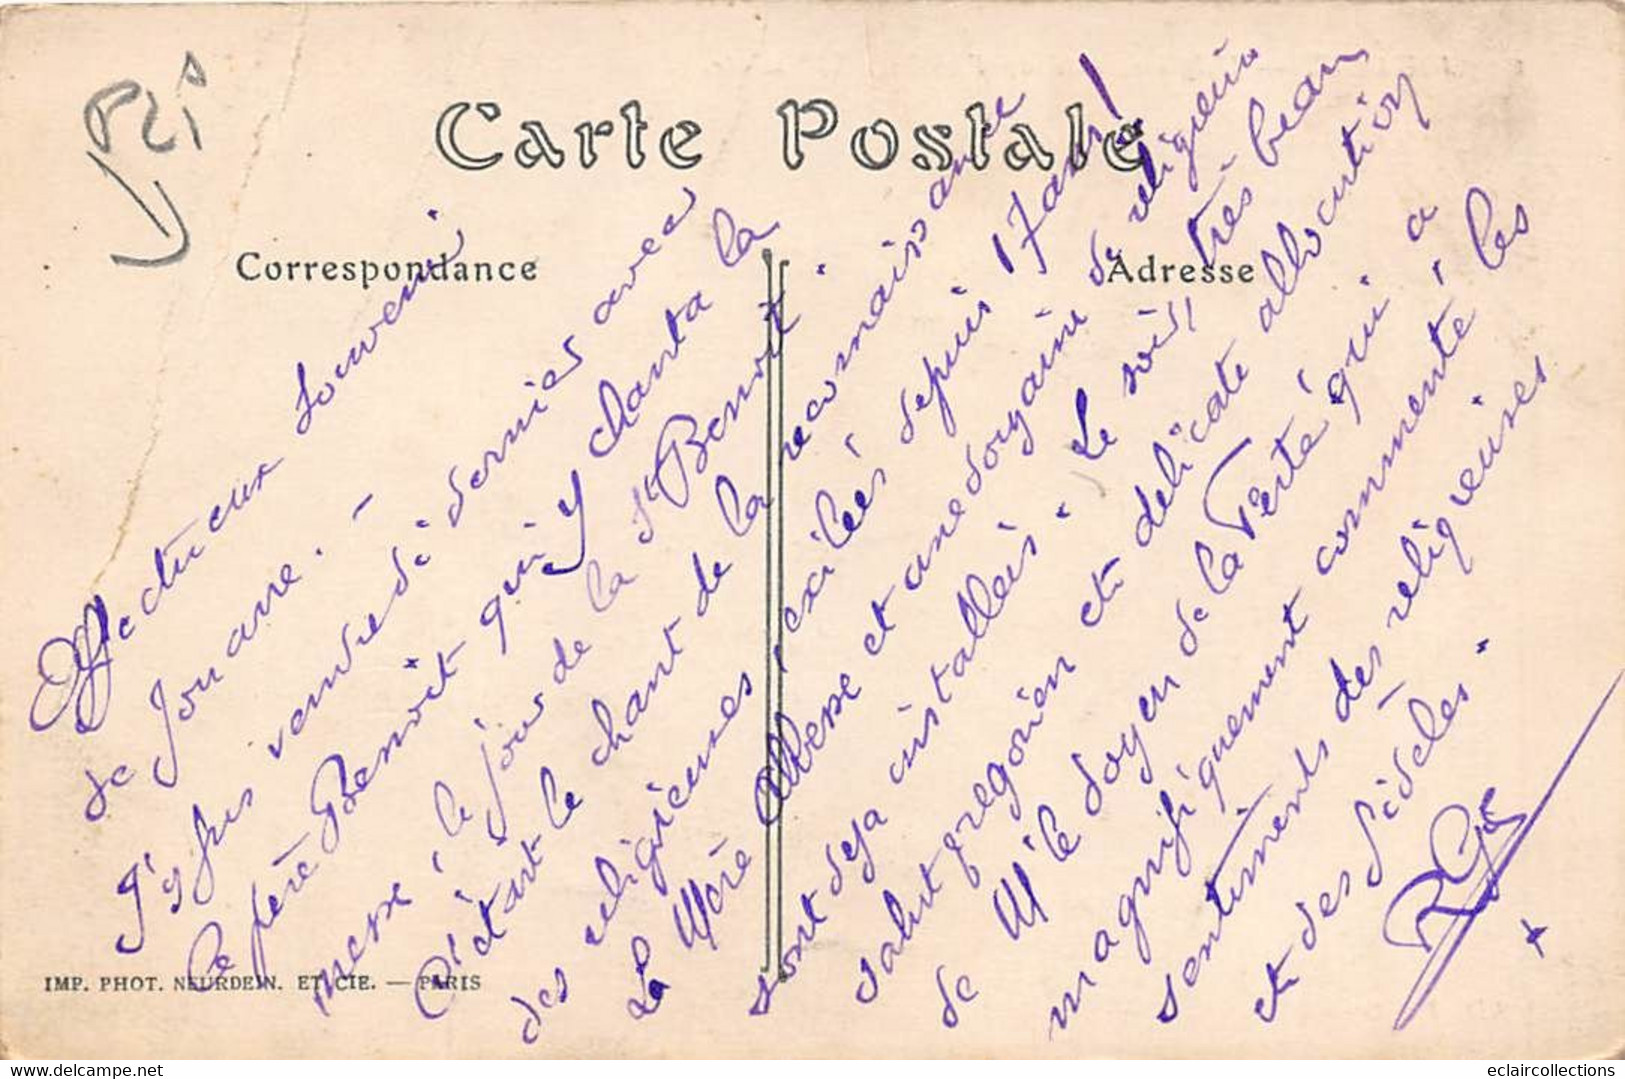 Carte Postale
Correspondance
Adresse
Affectueux souvenir
de Jouarre. —
J'y fus vendredi dernier avec
le père Benoit qui y chanta la
messe, le jour de la St Benoit.
C'était le chant de la reconnaissance
des religieuses, exilées depuis 17 ans!
La Mère Abbesse et une dizaine de religieuses
sont déjà installées. Le soir, très beau
salut grégorien et délicate allocution
de M. le doyen de la Ferté qui a
magnifiquement commenté les
sentiments des religieuses
et des fidèles.
IMP. PHOT. NEURDEIN. ET CIE. — PARIS
delcampe.net
eclaircollections